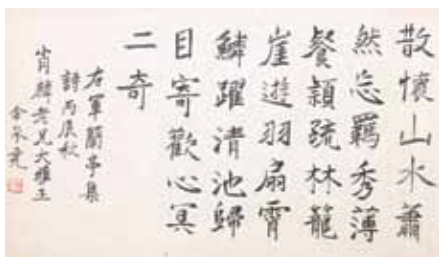 散懷山水蕭
然忘羈秀薄
餐穎疏林籠
崖遊羽扇霄
鱗躍清池歸
目寄歡心冥
二奇
右軍蘭亭集
詩丙辰秋
肖韓老兄大雅正